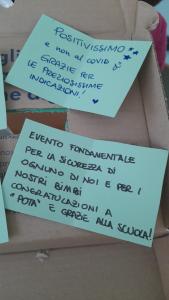 POSITIVISSIMO
e non al covid
GRAZIE PER
LE PREZIOSISSIME
INDICAZIONI!
EVENTO FONDAMENTALE
PER LA SICUREZZA DI
OGNUNO DI NOI E PER I
NOSTRI BIMBI
CONGRATULAZIONI A
"POTA" E GRAZIE ALLA SCUOLA!